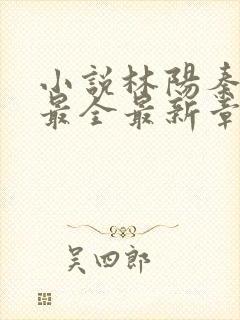 小説林陽秦
最全最新章
吴四郎